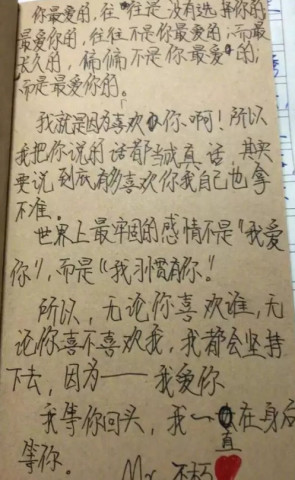 你最爱的,往往是没有选择你的;
最爱你的,往往不是你最爱的;而最
长久的,偏偏不是你最爱的;
而是最爱你的。
我就是因为喜欢你啊!所以
我把你说的话都当成真话,其实
要说到底有多喜欢你我自己也拿
不准。
世界上最牢固的感情不是“我爱
你”,而是“我习惯有你。”
所以,无论你喜欢谁,无
论你喜不喜欢我,我都会坚持
下去,因为——我爱你
我等你回头,我一直在身后
等你。
Mr 不朽